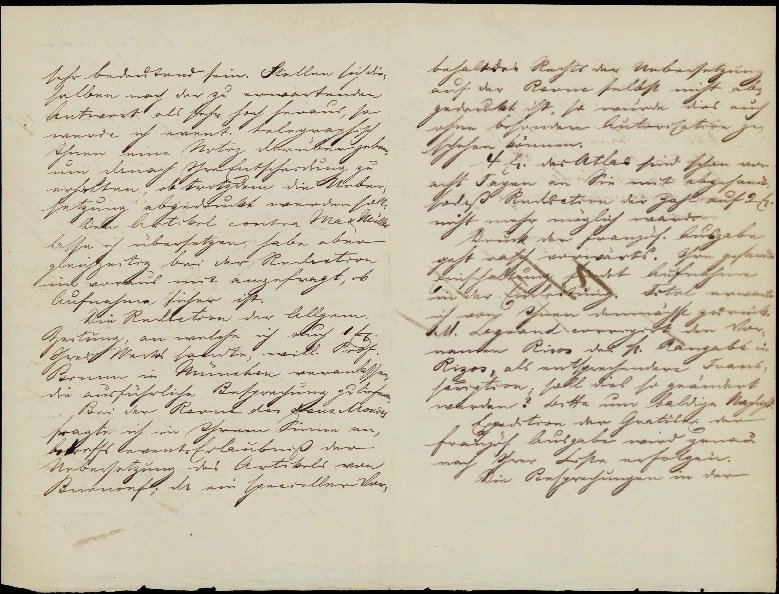 sehr bedeutend sein. Stellen sich die-
selben nach der zu erwartenden
Antwort als sehr hoch heraus, so
werde ich event. telegraphisch
Ihnen eine Notiz darüber geben,
um danach Ihre Entscheidung zu
erhalten, ob trotzdem die Ueber-
setzung abgedruckt werden soll.
Den Artikel contra Max Müller
lasse ich übersetzen, habe aber
gleichzeitig bei der Redaction
im voraus mit angefragt, ob
Aufnahme sicher ist.
Die Redaction der Allgem.
Zeitung, an welche ich auch 1 Ex.
Ihres Werks sandte, will Prof.
Brunn in München veranlassen,
die ausführliche Besprechung zu liefern.
Bei der Revue des deux Mondes
fragte ich in Ihrem Sinne an,
betreffs event. Erlaubniß der
Uebersetzung des Artikels von
Burnouf; da ein specieller Vor-
behalt des Rechts der Uebersetzung
auf der Revue selbst nicht ab-
gedruckt ist, so würde dies auch
ohne besondere Autorisation ge-
schehen können.
4 Ex. des Atlas sind schon vor
acht Tagen an Sie mit abgesandt,
sodaß Reduction der Zahl auf 2 Ex.
nicht mehr möglich war.
Druck der französ. Ausgabe
geht rasch vorwärts. Ihre gesandte
Einschaltung findet Aufnahme
in der Einleitung. Titel erwarte
ich von Ihnen demnächst zurück.
M. Legrand corrigirt den Vor-
namen Rizos des H. Rangabé in
Rizos, als entsprechendere Trans-
scription; soll das so geändert
werden? Bitte um baldige Nachricht.
Expedition der Gratisex. der
französ. Ausgabe wird genau
nach Ihrer Liste erfolgen.
Die Besprechungen in der